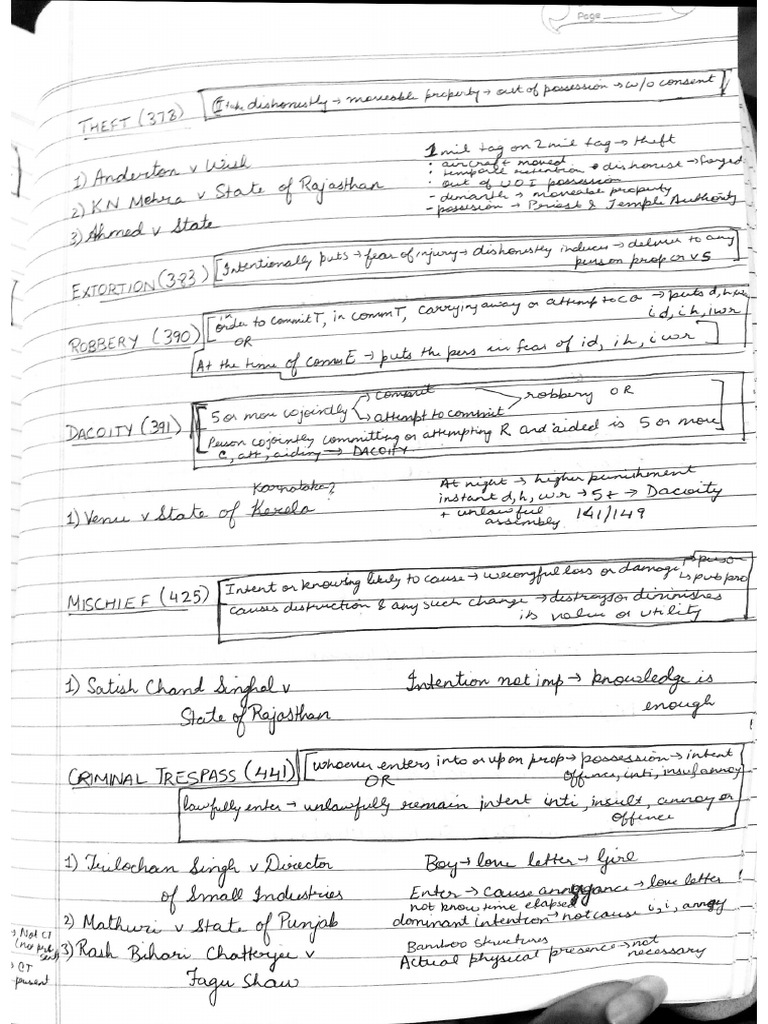 Page
THEFT (378) [I take dishonestly → moveable property → out of possession → w/o consent]
1) Anderton v Wish
1 mil tag on 2 mil tag → theft
2) KN Mehra v State of Rajasthan
• aircraft moved
• temporary retention • dishonest →
• out of UOI possession
3) Ahmed v State
- → moveable property
- possession → Priest & Temple Authority
EXTORTION (383) [Intentionally puts → fear of injury → dishonestly induces → deliver to any
person prop or VS
ROBBERY (390) [in order to commit T, in comm T, carrying away or attempt to c a → puts d, h, wr
OR i d, i h, i wr
At the time of comm E → puts the pers in fear of id, ih, i wr]
DACOITY (391) [5 or more cojointly → commit
→ attempt to commit robbery OR
Person cojointly committing or attempting R and aided is 5 or more]
C, att, aiding → DACOITY
Karnataka?
1) Venu v State of Kerela
At night → higher punishment
instant d, h, wr → 5+ → Dacoity
+ unlawful
assembly 141/149
MISCHIEF (425) [Intent or knowing likely to cause → wrongful loss or damage → person
↳ pub pro
causes distruction & any such change → destroys or diminishes
its value or utility
1) Satish Chand Singhal v
State of Rajasthan
Intention not imp → knowledge is
enough
CRIMINAL TRESPASS (441) [whoever enters into or upon prop → possession → intent
OR offence, inti, insul, annoy
lawfully enter → unlawfully remain intent inti, insult, annoy or
offence
1) Trilochan Singh v Director
of Small Industries
Boy → love letter → Girl
Enter → cause → love letter
not know time elapsed
2) Mathuri v State of Punjab
dominant intention → not cause i, i, annoy
→ Not CT
3) Rash Bihari Chatterjee v
Fagu Shaw
Bamboo Structures
Actual physical presence → not
necessary
→ CT
present